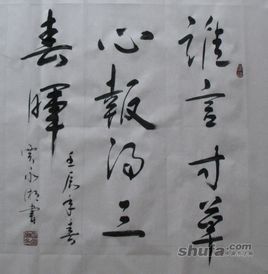 誰言寸草
心報得三
春暉
壬辰年春
永書
shufa.com